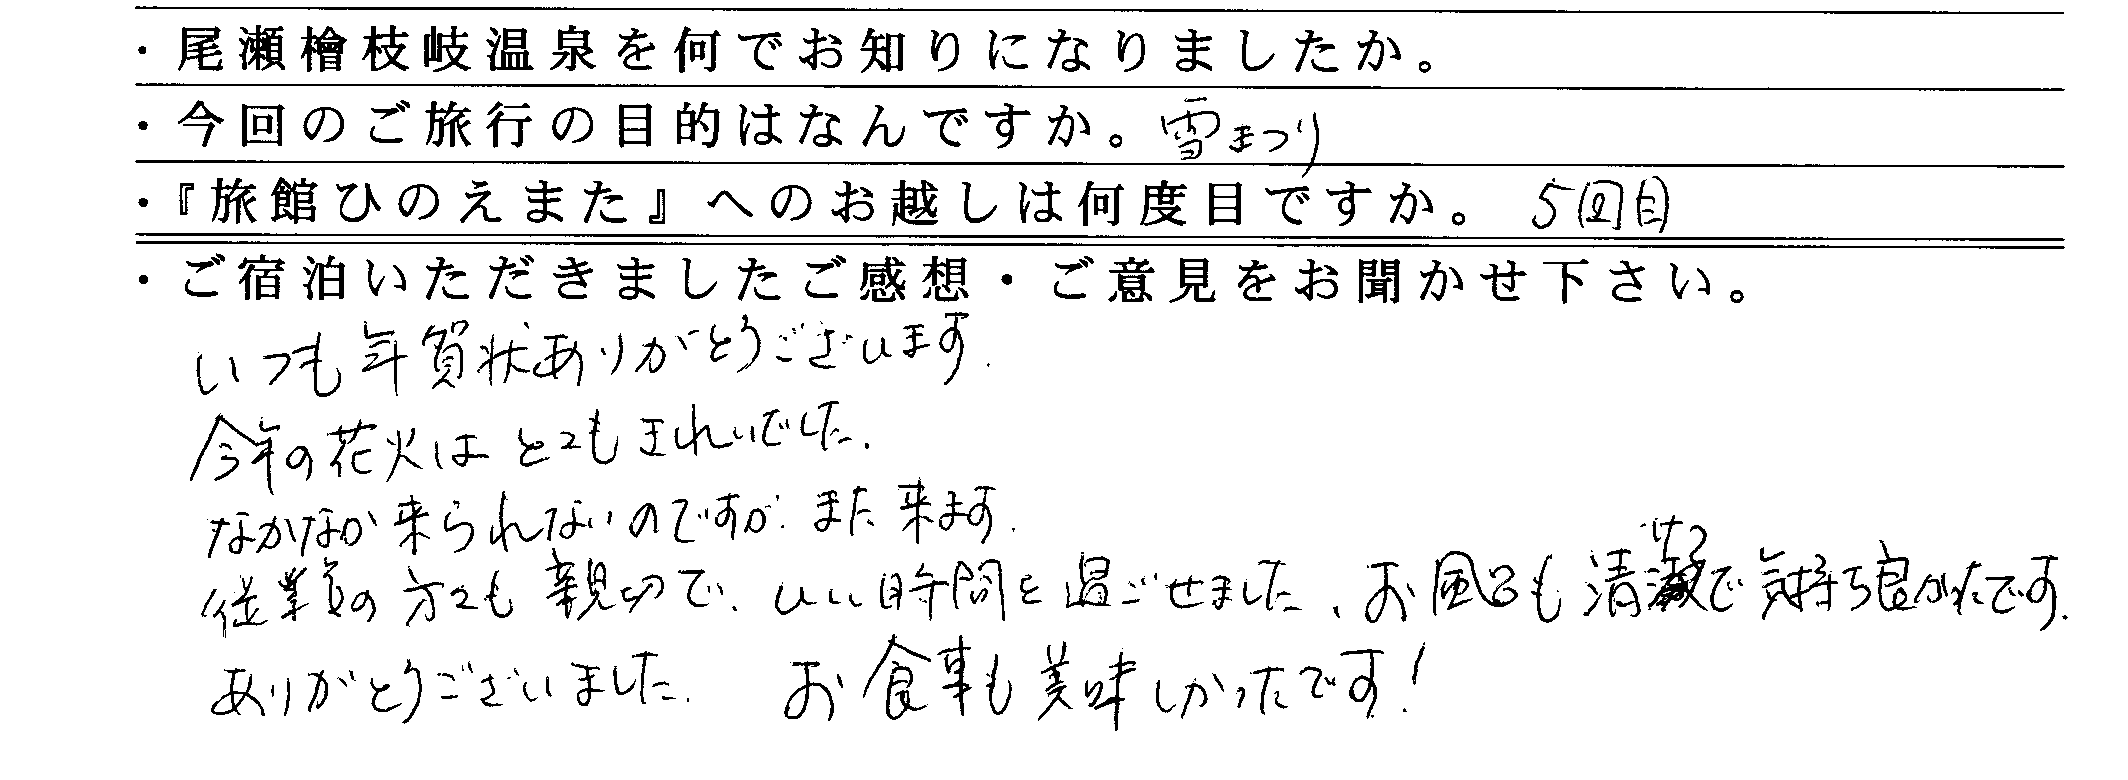 ・尾瀬檜枝岐温泉を何でお知りになりましたか。
・今回のご旅行の目的はなんですか。雪まつり
・『旅館ひのえまた』へのお越しは何度目ですか。 5回目
・ご宿泊いただきましたご感想・ご意見をお聞かせ下さい。
いつも年賀状ありがとうございます.
今年の花火はとてもきれいでした.
なかなか来られないのですが. また来ます.
従業員の方々も親切で、いい時間を過ごせました、お風呂も清けつで気持ち良かったです.
ありがとうございました. お食事も美味しかったです!